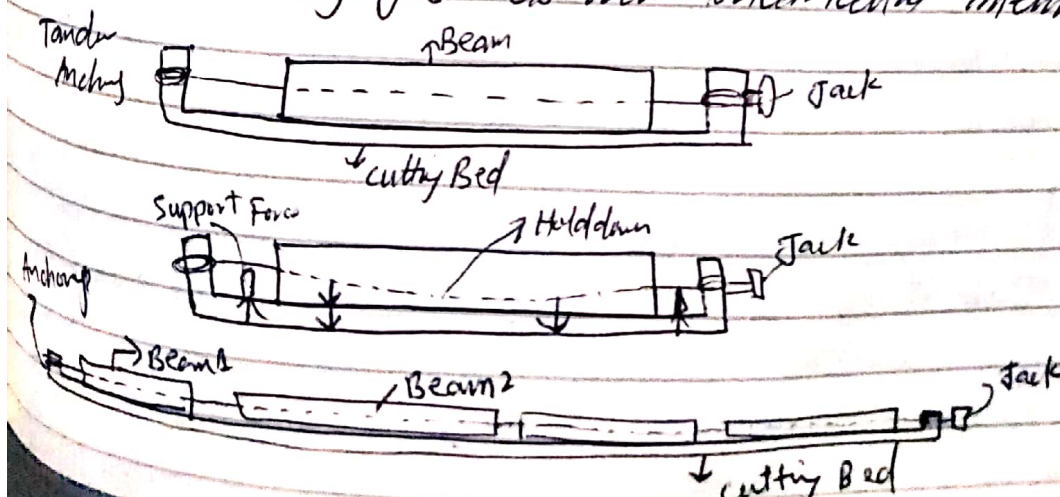 Beam
Jack
cutting Bed
Support Force
Holddown
Jack
Anchorg
Beam1
Beam2
Jack
cutting Bed